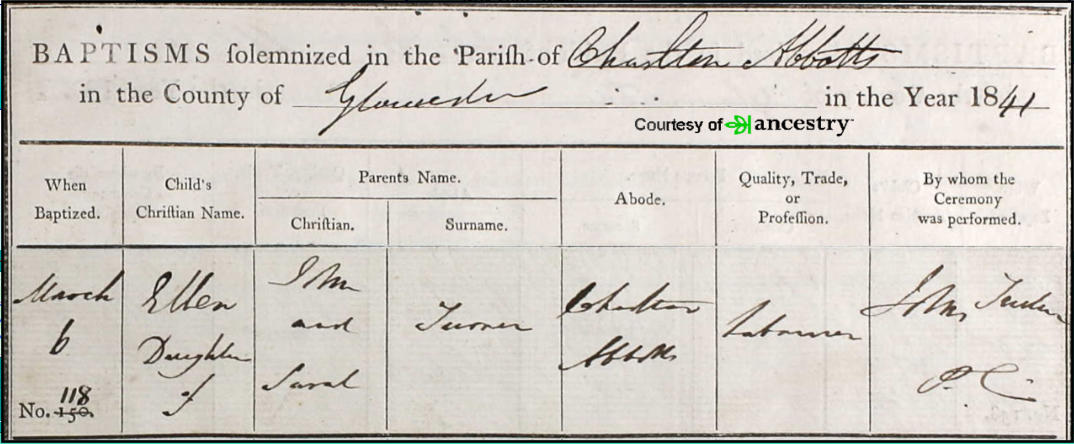 BAPTISMS solemnized in the Parish of Charlton Abbotts
in the County of Gloucester in the Year 1841
Courtesy of ancestry
When Baptized.
Child's Christian Name.
Parents Name.
Christian.
Surname.
Abode.
Quality, Trade, or Profession.
By whom the Ceremony was performed.
March
6
No. 150.
118
Ellen
Daughter
of
John
and
Sarah
Turner
Charlton
Abbotts
Labourer
John
P. C.